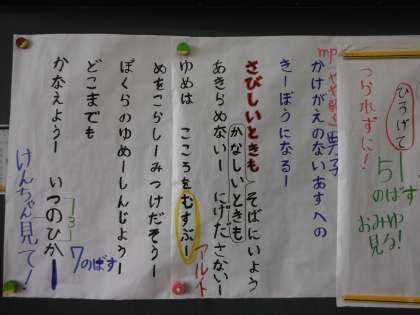 ひろげて
つられずに！
51
のばす
おみゆ
見る！
mp
男子
かけがえのないあすへの
きーぼうになるー
さびしいときも そばにいよう
かなしいときも
あきらめないー にげださないー
アルト
ゆめは こころをむすぶー
めをこらしーみつけだそうー
ぼくらのゆめーしんじようー
どこまでも
かなえようー いつのひかー
3
7のばす
けんちゃん見て！